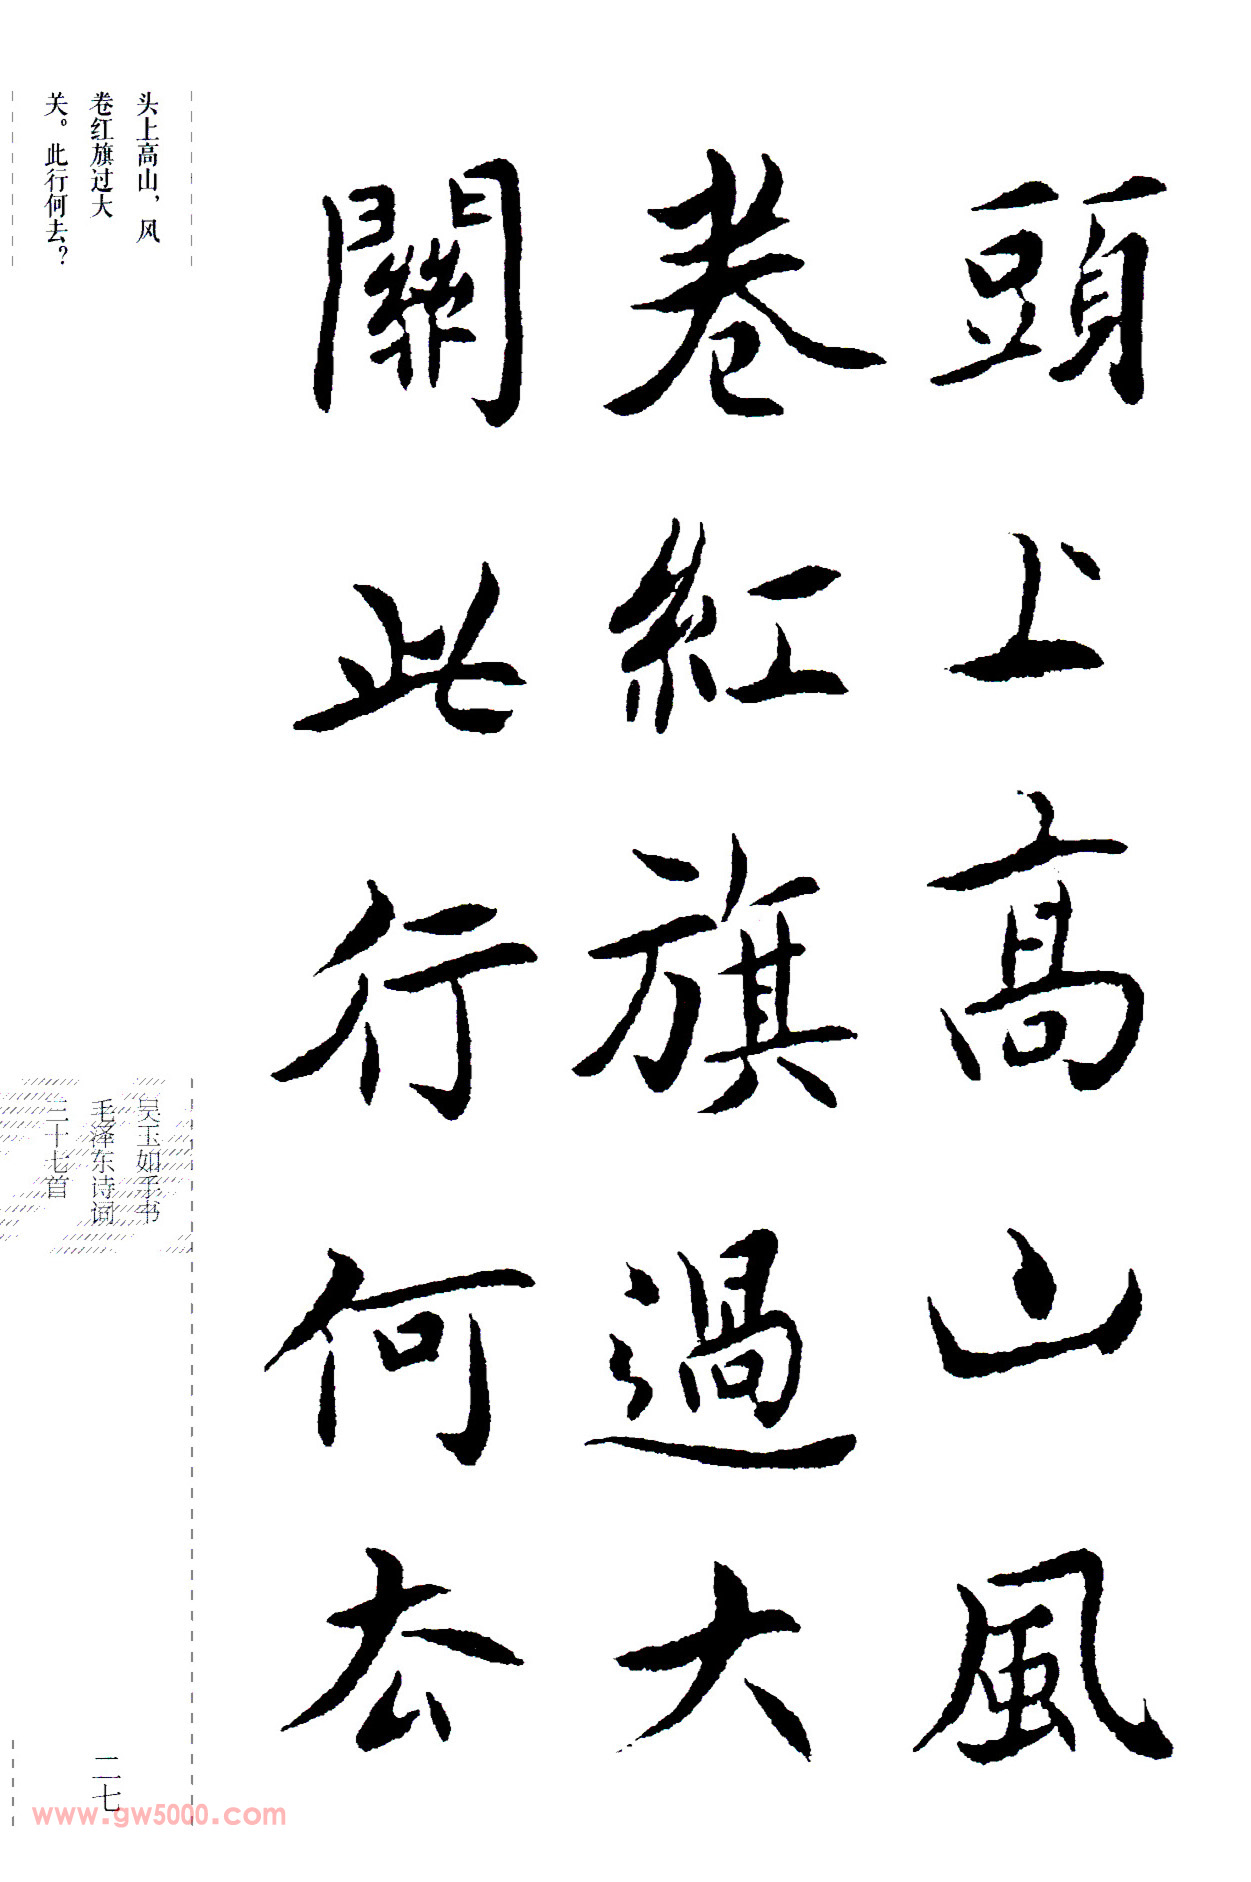 頭上高山風
卷紅旗過大
關此行何去
头上高山，风
卷红旗过大
关。此行何去？
吴玉如手书
毛泽东诗词
三十七首
二七
www.gw5000.com